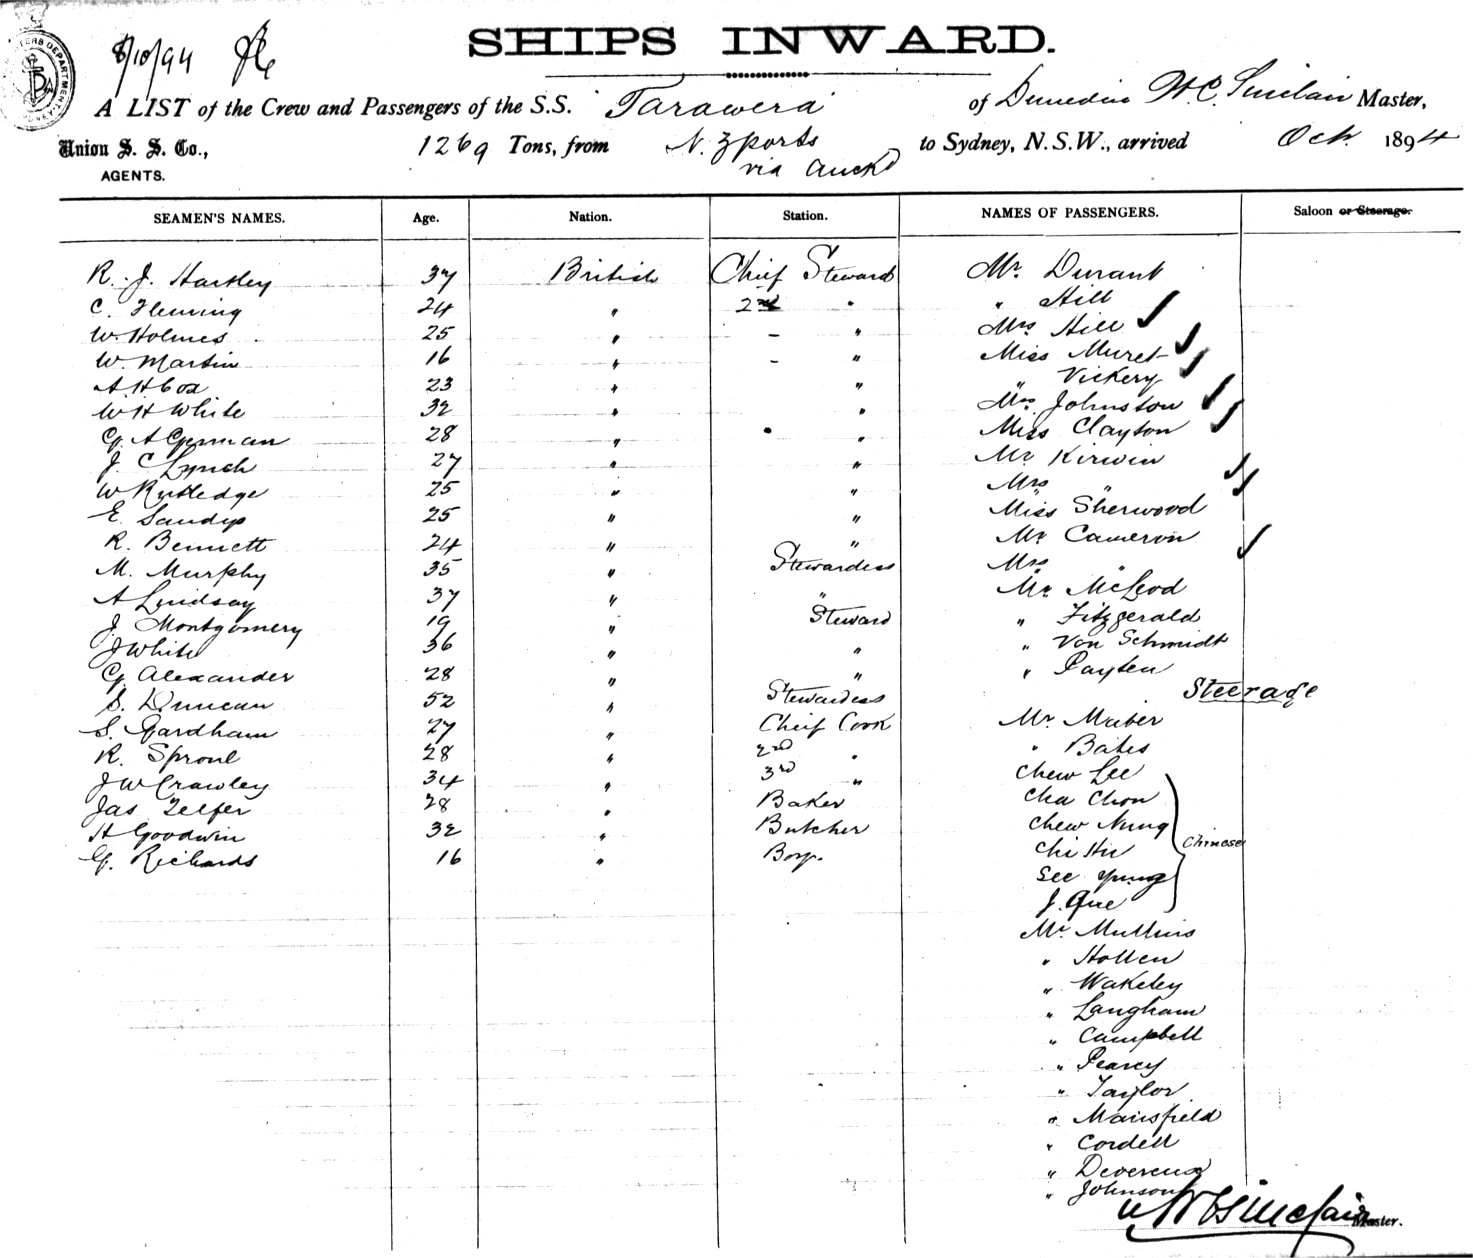 8/10/94
SHIPS INWARD.
A LIST of the Crew and Passengers of the S.S. Tarawera of Dunedin W.C. Sinclair Master,
Union S. S. Co., 1269 Tons, from N. Z ports to Sydney, N.S.W., arrived Oct. 1894
AGENTS. via Auckd
SEAMEN'S NAMES. Age. Nation. Station. NAMES OF PASSENGERS. Saloon or Steerage.
R. J. Hartley 37 British Chief Steward Mr. Durant
C. Fleming 24 " 2nd " " Hill
W. Holmes 25 " - " Mrs Hill
W. Martin 16 " - " Miss Muret
A H Cox 23 " " " Vickery
W H White 32 " " Mrs Johnston
G. A German 28 " " Miss Clayton
J. C Lynch 27 " " Mr Kirwin
W Rutledge 25 " " Mrs "
E. Sandys 25 " " Miss Sherwood
R. Bennett 24 " " Mr Cameron
M. Murphy 35 " Stewardess Mrs "
A Lindsay 37 " " Mr McLeod
J. Montgomery 19 " Steward " Fitzgerald
J White 36 " " " Von Schmidt
G. Alexander 28 " " " Payten
S. Duncan 52 " Stewardess Steerage
S. Gardham 27 " Cheif Cook Mr. Maber
R. Sproul 28 " 2nd " " Bates
J W Crawley 34 " 3rd " Chew Lee
Jas Telfer 28 " Baker Cha Chon
H Goodwin 32 " Butcher Chew Nung
G. Richards 16 " Boy. Chi Hu Chinese
See Yung
J. Que
Mr. Mullins
" Hollen
" Wakeley
" Langham
" Campbell
" Pearcy
" Taylor
" Mansfield
" Cordell
" Devereux
" Johnson
W C Sinclair Master.